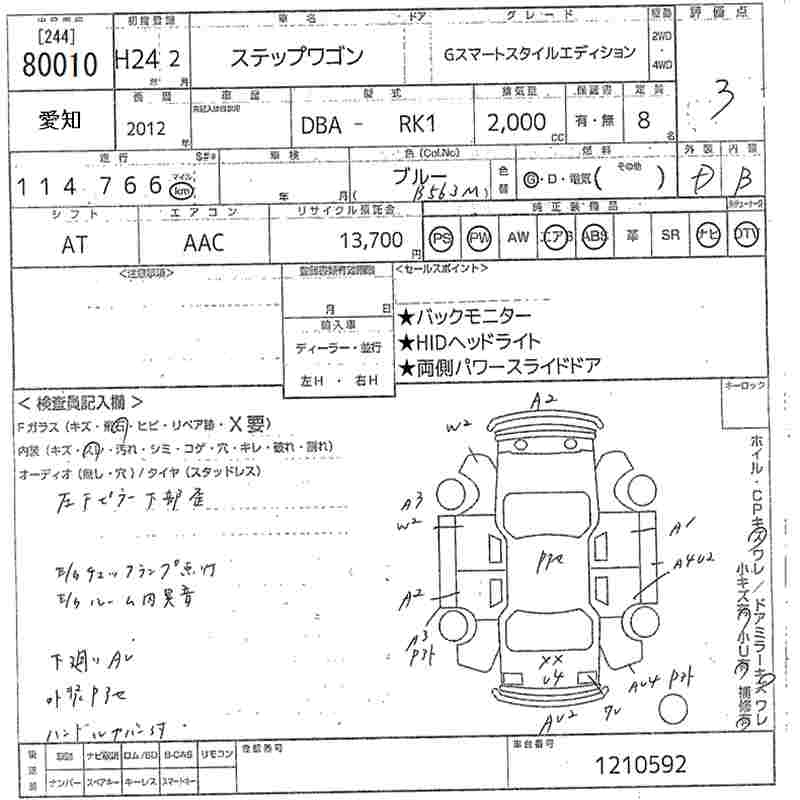 [244] 初度登録 車名 ドア グレード 駆動 評価点
80010 H24年 2月 ステップワゴン Gスマートスタイルエディション 2WD・4WD 3
愛知 2012年 車歴 型式 排気量 保証書 定員
DBA - RK1 2,000cc 有・無 8名
走行 車検 色(Col.No) 燃料 外装 内装
114,766 マイル km 年 月 ブルー (B563M) 色替 G・D・電気( その他 ) D B
シフト エアコン リサイクル預託金 純正装備品
AT AAC 13,700円 PS PW AW エアB ABS 革 SR ナビ DTV
<注意事項> <セールスポイント>
月 日
輸入車 ★バックモニター
ディーラー・並行 ★HIDヘッドライト
左H ・ 右H ★両側パワースライドドア
キーロック
< 検査員記入欄 >
Fガラス (キズ・飛石・ヒビ・リペア跡・X要)
内装 (キズ・スリ・汚れ・シミ・コゲ・穴・キレ・破れ・割れ)
オーディオ (無し・穴) / タイヤ (スタッドレス)
左Fピラー下部歪
E/gチェックランプ点灯
E/gルーム内異音
下廻り AU
外装 P3セ
ハンドルカバー付
A2
W2
A3
W2
A1
A4U2
P3セ
A2
A3
P3ト
XX
U4
AU4 P3ト
AU2 ワレ
ホイル・CPキズワレ / ドアミラーキズワレ
小キズ有 小U有 補修有
後送部 取説 ナビ取説 ロム/SD B-CAS リモコン 登録番号 車台番号
ナンバー スペアキー キーレス スマートキー 1210592